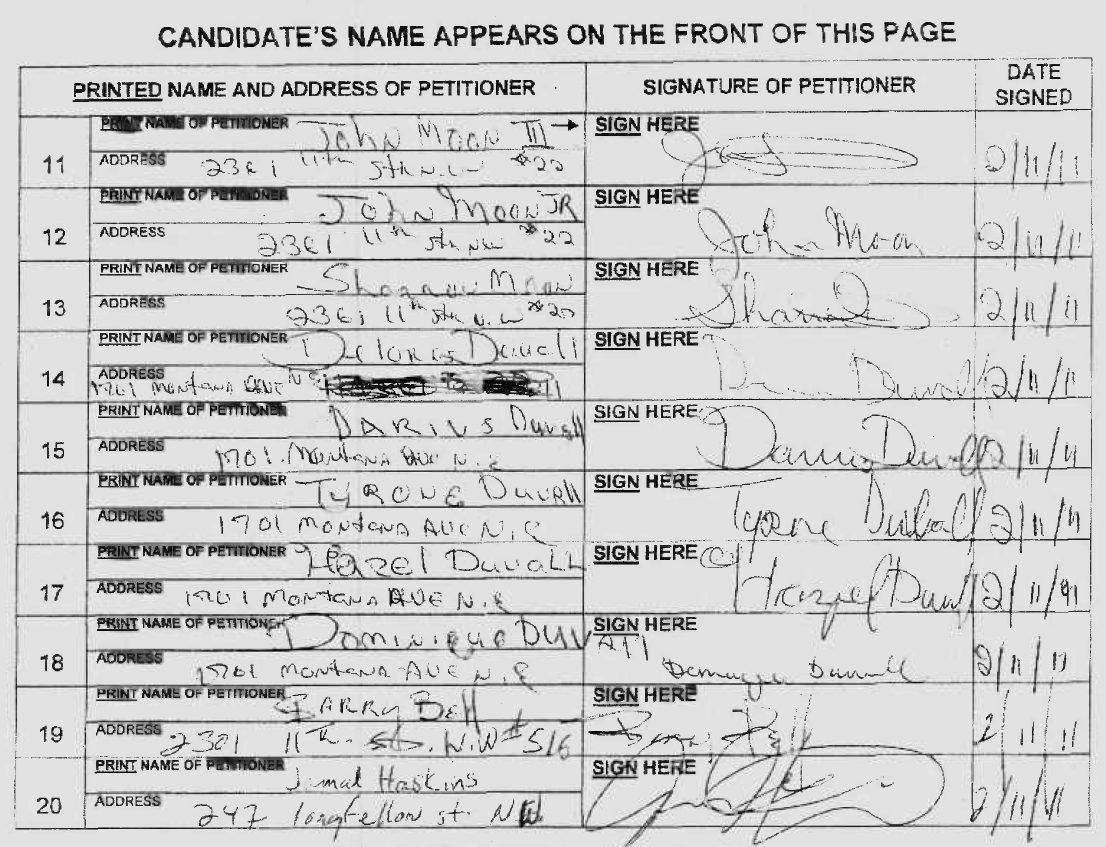 CANDIDATE'S NAME APPEARS ON THE FRONT OF THIS PAGE
PRINTED NAME AND ADDRESS OF PETITIONER SIGNATURE OF PETITIONER DATE SIGNED
11 PRINT NAME OF PETITIONER John Moon III SIGN HERE 2/11/11
ADDRESS 2381 11th St N.W #22
12 PRINT NAME OF PETITIONER John Moon JR SIGN HERE John Moon 2/11/11
ADDRESS 2381 11th St NW #22
13 PRINT NAME OF PETITIONER Moon SIGN HERE 2/11/11
ADDRESS 2381 11th St N.W #22
14 PRINT NAME OF PETITIONER Delores Duvall SIGN HERE Duvall 2/11/11
ADDRESS 1701 Montana AVE N.E
15 PRINT NAME OF PETITIONER DARIUS Duvall SIGN HERE Darius Duvall 2/11/11
ADDRESS 1701 Montana AVE N.E
16 PRINT NAME OF PETITIONER TYRONE DUVAll SIGN HERE Tyrone Duvall 2/11/11
ADDRESS 1701 Montana AVE N.E
17 PRINT NAME OF PETITIONER Hazel DuvaLL SIGN HERE Hazel Duvall 2/11/11
ADDRESS 1701 Montana AVE N.E
18 PRINT NAME OF PETITIONER Dominique DUVAll SIGN HERE 2/11/11
ADDRESS 1701 Montana AVE N.E
19 PRINT NAME OF PETITIONER BARRY Bell SIGN HERE Barry Bell 2/11/11
ADDRESS 2381 11th St. N.W #516
20 PRINT NAME OF PETITIONER Jamal Haskins SIGN HERE 2/11/11
ADDRESS 247 longfellow st. NW